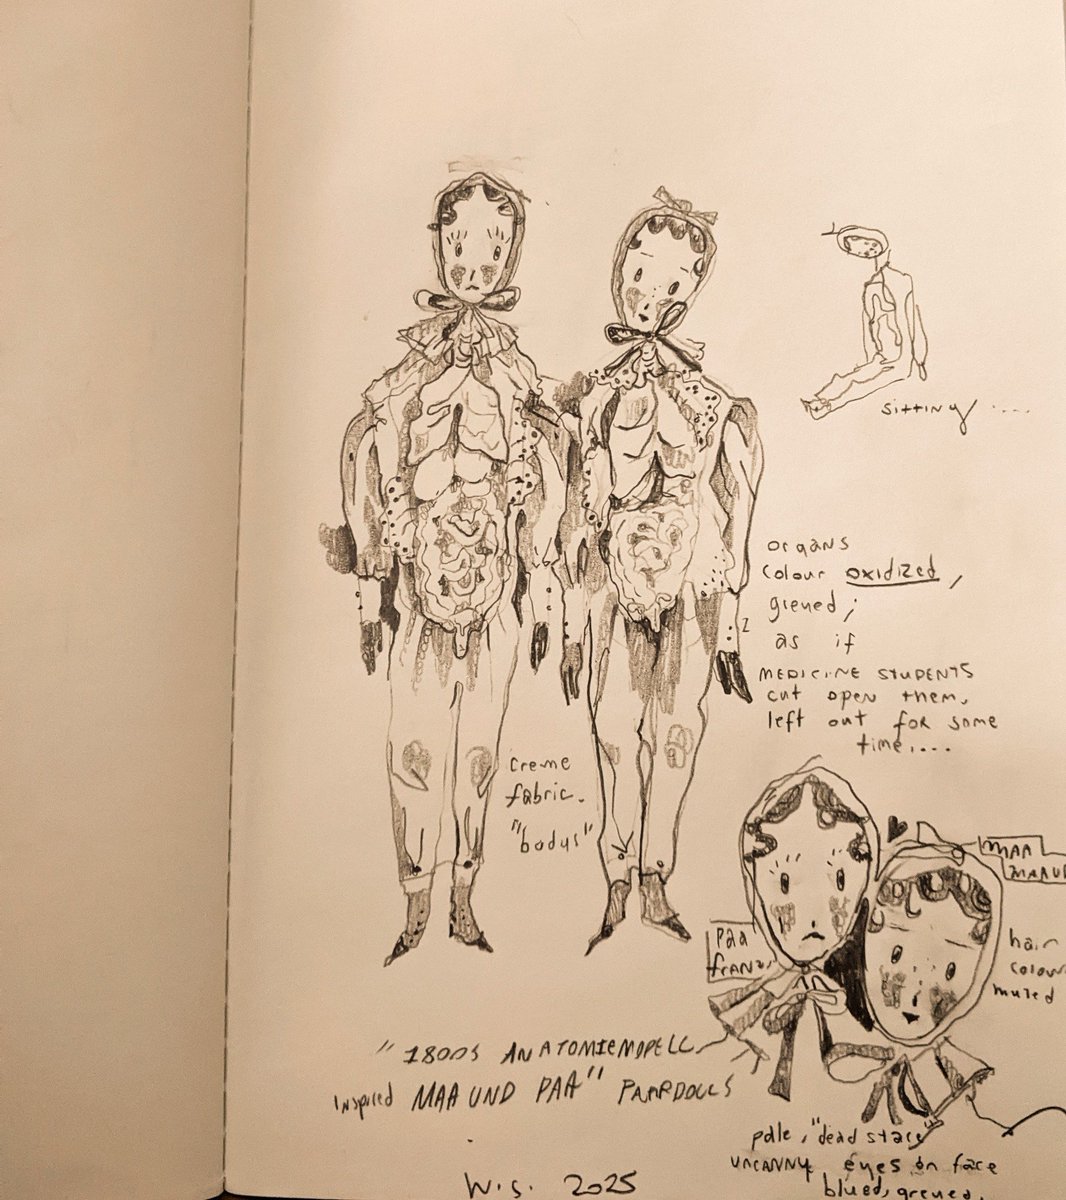 sitting ....
organs
colour oxidized,
greued;
as if
MEDICINE STUDENTS
cut open them,
left out for some
time,...
creme
fabric.
"bodys"
MAA
PAA
FRANZ
hair
colour
muted
"1800s ANATOMIEMODELL
inspired MAA UND PAA" PAARDOLLS
pale, "dead stare"
UNCANNY eyes on face
blued, greued.
W.S. 2025